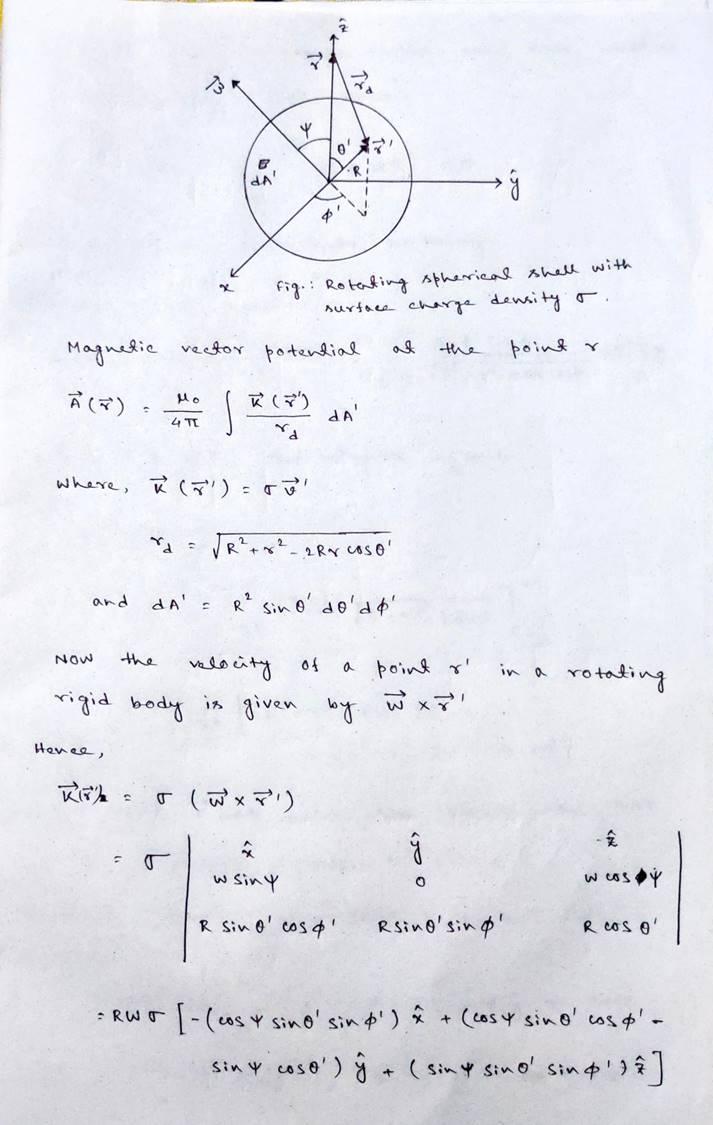 ẑ
r⃗
r⃗_d
ω⃗
ψ
θ'
r⃗'
R
dA'
ŷ
φ'
x
Fig.: Rotating spherical shell with
surface charge density σ.
Magnetic vector potential at the point r
A⃗(r⃗) = μ₀/4π ∫ K⃗(r⃗')/r_d dA'
Where, K⃗(r⃗') = σ v⃗'
r_d = √(R² + r² - 2Rr cosθ')
and dA' = R² sinθ' dθ' dφ'
Now the velocity of a point r' in a rotating
rigid body is given by ω⃗ × r⃗'
Hence,
K⃗(r⃗') = σ (ω⃗ × r⃗')
= σ | x̂ ŷ ẑ |
| ω sinψ 0 ω cosψ |
| R sinθ' cosφ' R sinθ' sinφ' R cosθ' |
= Rωσ [-(cosψ sinθ' sinφ') x̂ + (cosψ sinθ' cosφ' -
sinψ cosθ') ŷ + (sinψ sinθ' sinφ') ẑ]